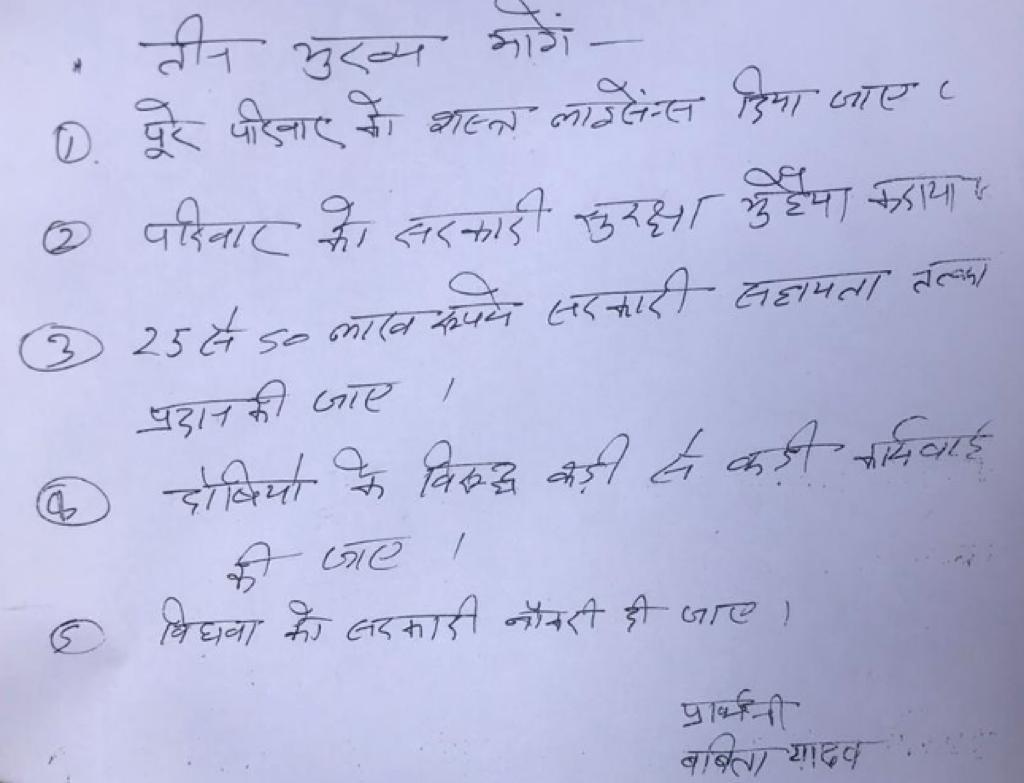 तीन मुख्य मांगें —
① पूरे परिवार को शस्त्र लाइसेंस दिया जाए ।
② परिवार को सरकारी सुरक्षा मुहैया कराया
③ 25 से 50 लाख रूपये सरकारी सहायता तत्का
प्रदान की जाए ।
④ दोषियो के विरूद्ध कड़ी से कड़ी कार्यवाई
की जाए ।
⑤ विधवा को सरकारी नौकरी दी जाए ।
प्रार्थनी
बबिता यादव